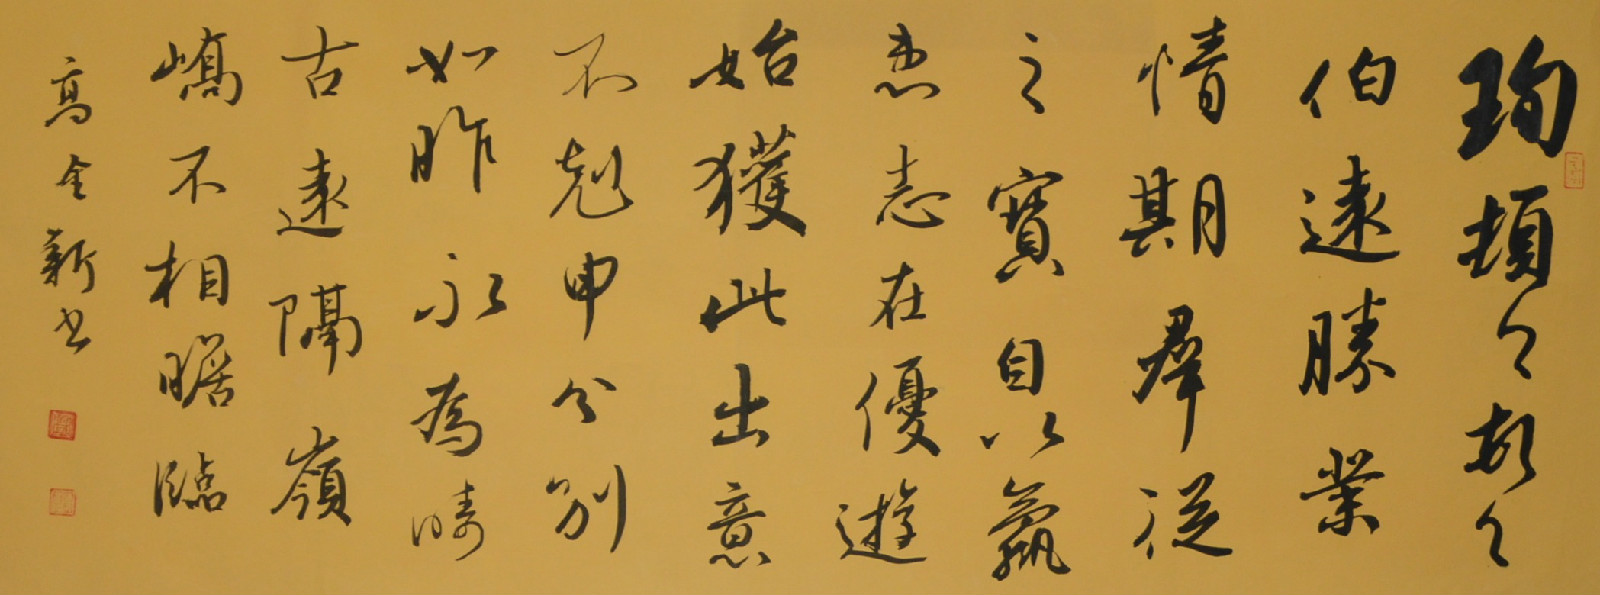 珣頓首頓首
伯遠勝業
情期羣從
之寶自以羸
患志在優遊
始獲此出意
不剋申分別
如昨永為疇
古遠隔嶺
嶠不相瞻臨
高金新书